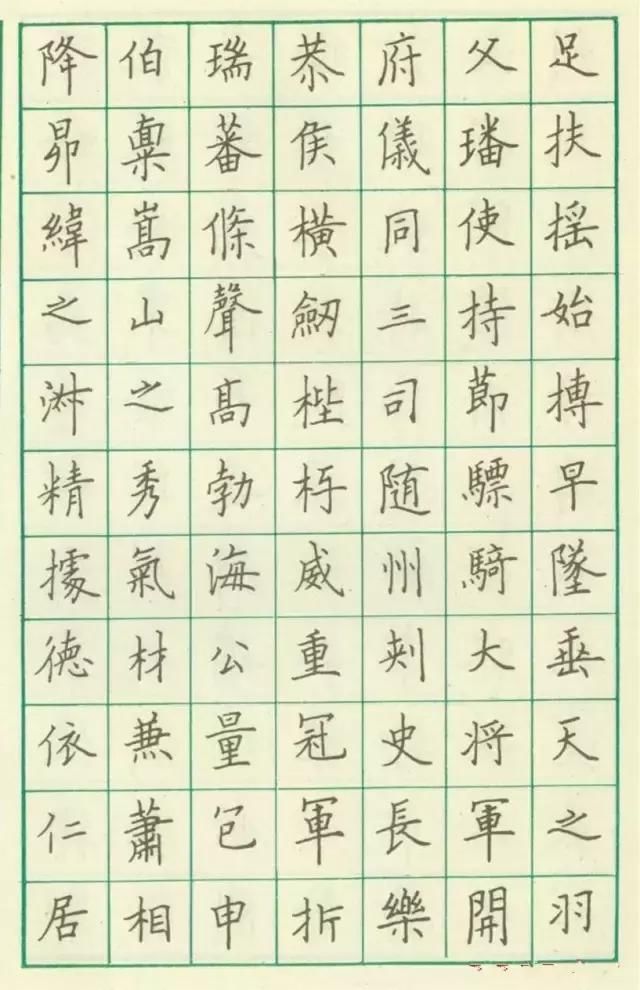 足扶揺始搏早墜垂天之羽
父璠使持莭驃騎大将軍開
府儀同三司随州刾史長樂
恭侯橫劒梐枑威重冠軍折
瑞蕃條聲髙勃海公量包申
伯稟嵩山之秀氣材兼蕭相
降昴緯之淑精據徳依仁居